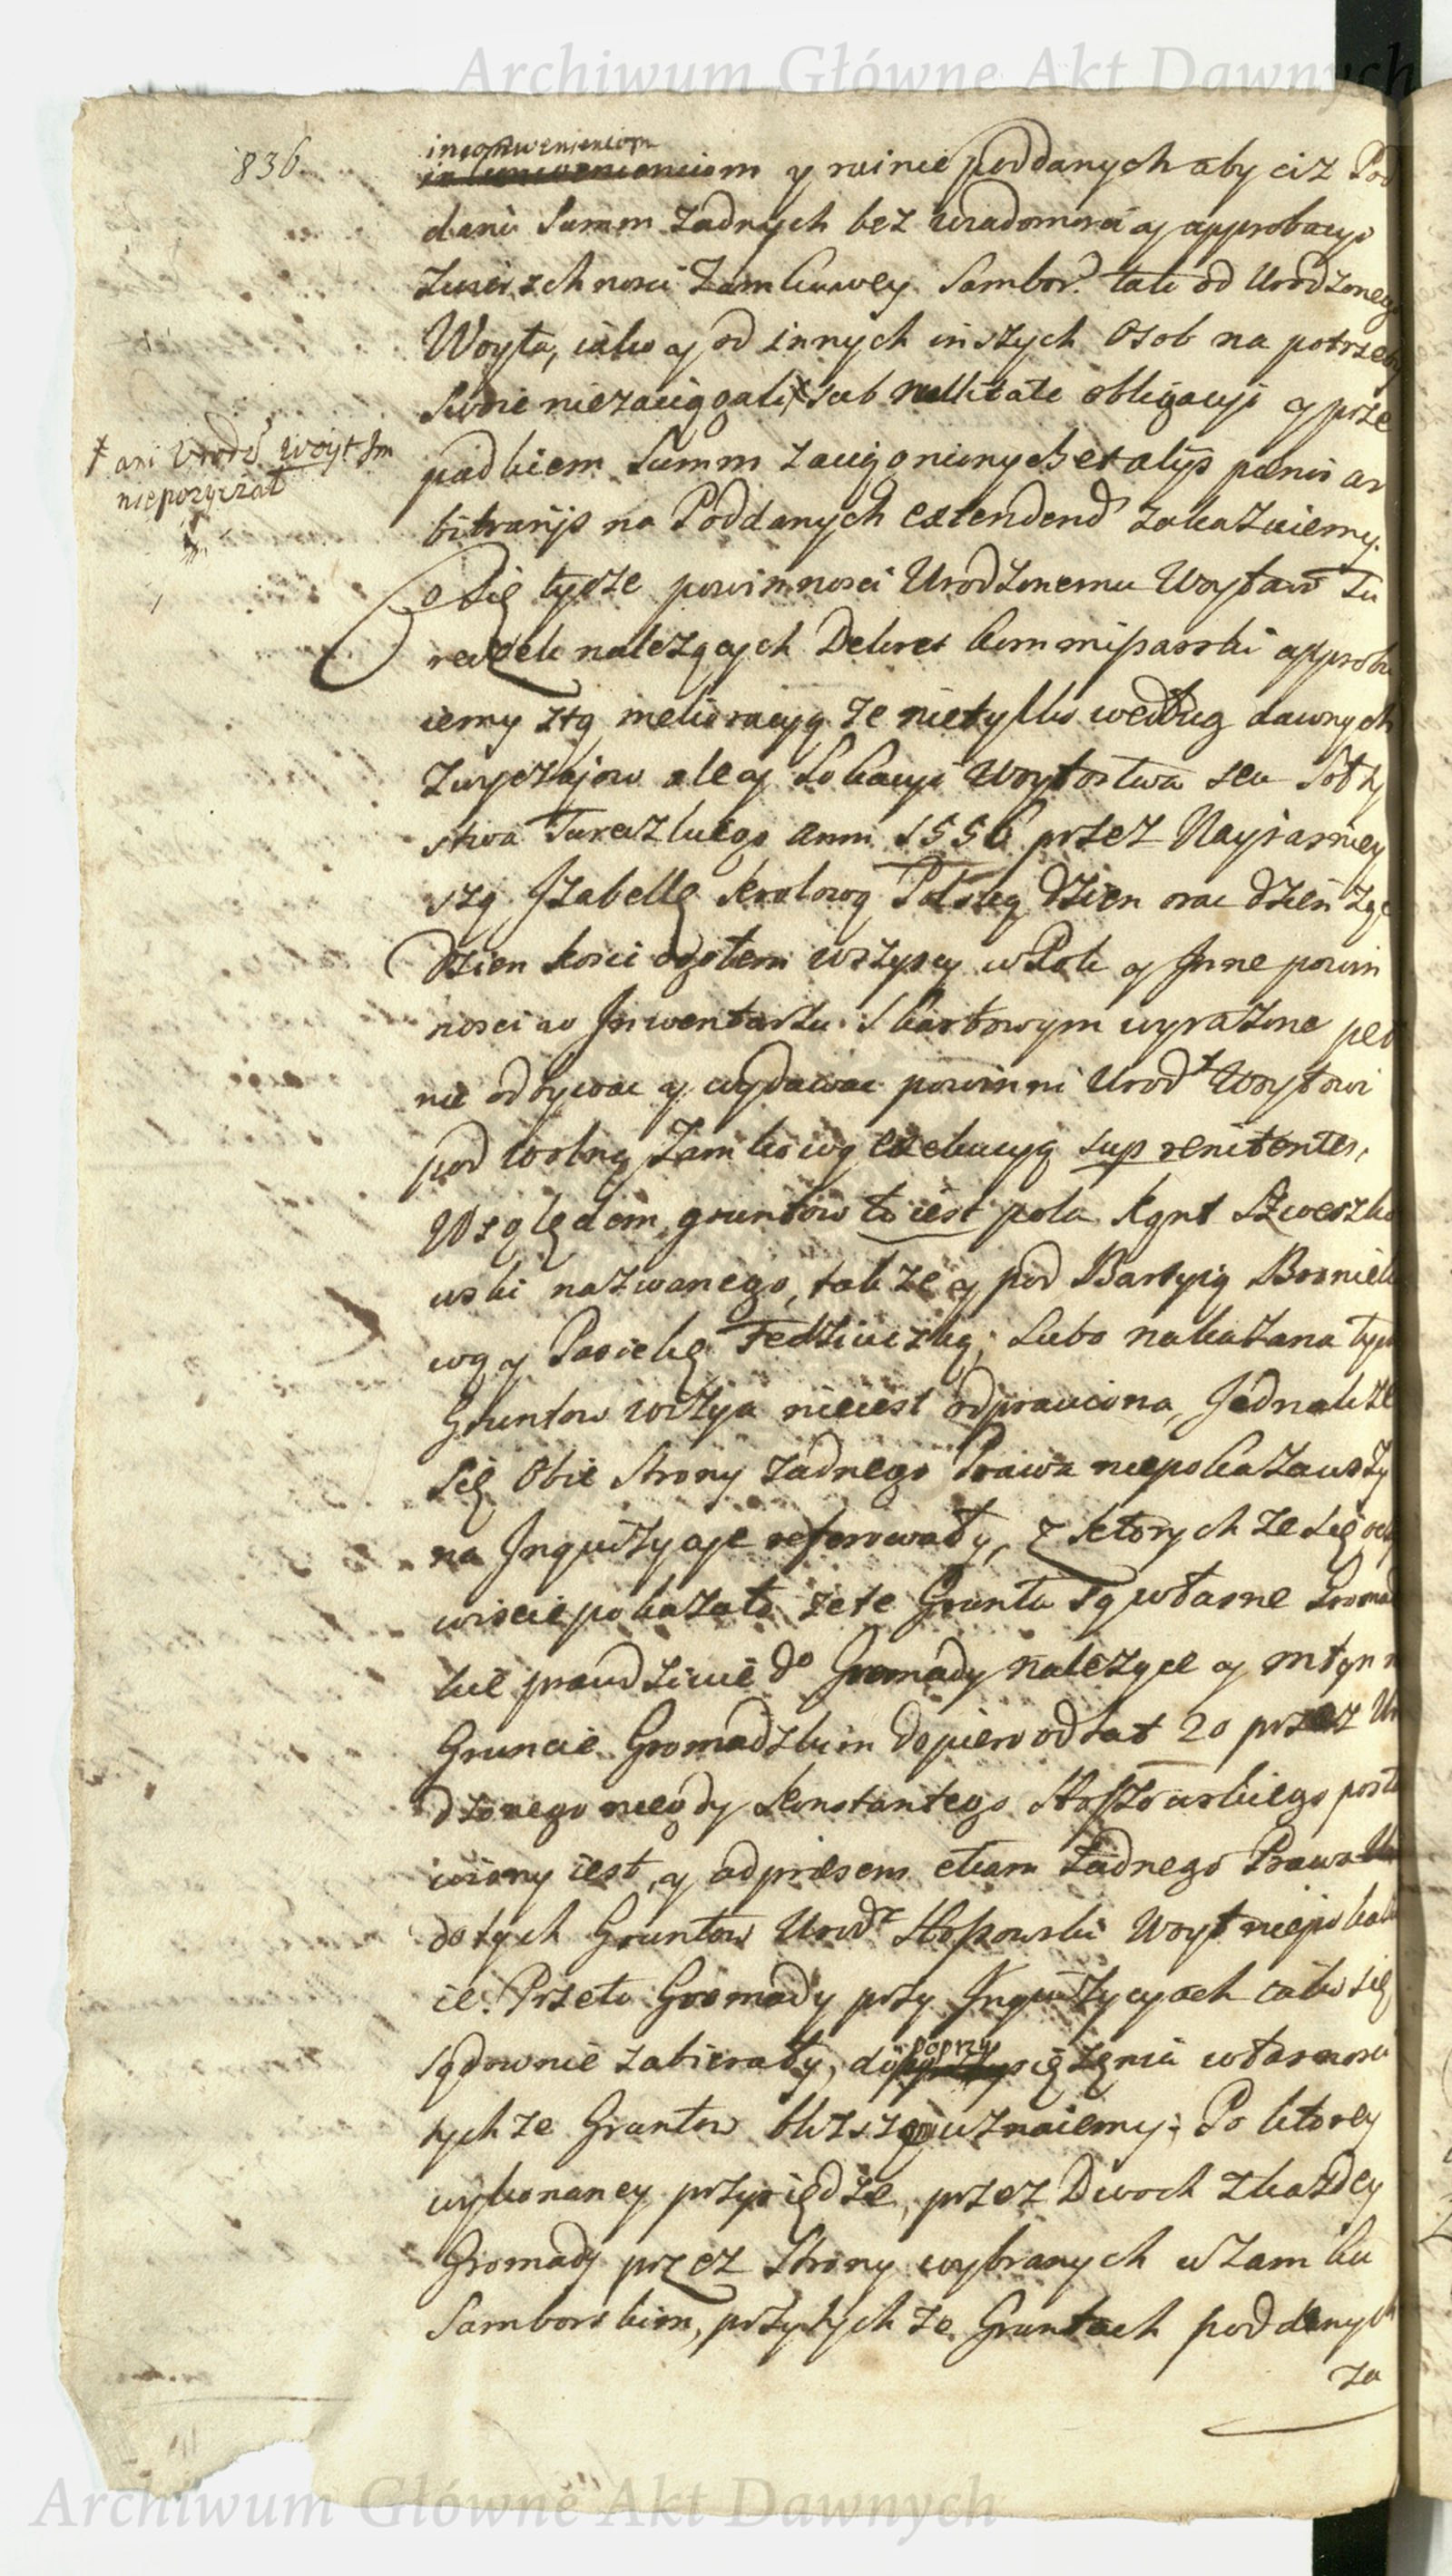 Archiwum Główne Akt Dawnych
836.
inconwenienciom
y ruinie poddanych aby ciż Pod
dani Summ żadnych bez wiadomosci y approbacyi
Zwierzchnosci Zamkowey Sambor. tak od Urodzonego
Woyta, iako y od innych inszych Osob na potrzeby
swoie niezaciągali sub nullitate obligacyi y prze
padkiem Summ zaciągnionych et alijs pœnis ar
bitrarijs na Poddanych extendend zakazuiemy.
ani Urodz Woyt Im
niepozyczał
Co się tycze powinnosci Urodzonemu Woytow Tu
reczek należących Dekret kommissarski approbu
iemy z tą melioracyą że nietylko według dawnych
zwyczajow ale y Lokacyi Woytostwa seu Sołty
stwa Tureczkiego anni 1556 przez Nayiasniey
szą Izabellę Krolową Polską dzien orac dzień żąć
dzien kosić ogołem wszyscy w Polu y Inne powin
nosci w Inwentarzu Skarbowym wyrażone peł
nić odbywac y wydawac powinni Urodz Woytowi
pod wolną Zamkową exekucyą sup renitentes,
Względem gruntow to iest pola Kąnt Szweszko
wski nazwanego, także y pod Bartyią Bronick
wą y Pasiekę Fedziuczką; Lubo nakazana tych
Gruntow wizya nieiest odprawiona, Jednakże
Się Obie Strony żadnego Prawa niepokazawszy
na Inquizycyje referowały, z ktorych że się ocz
wiscie pokazało że te Grunta są własne Gromac
kie prawdziwie do Gromady należące y młyn n
Gruncie Gromadzkim dopiero od Lat 20 przez Ur
dzonego niegdy Konstantego Hoszowskiego posta
wiony iest, y ad præsens etiam żadnego Prawa
do tych Gruntow Urodz Hoszowski Woyt niepokazu
ie. Przeto Gromady przy Inquizycyach iako się
sądownie zabierały, do poprzysiężenia własnosci
tychże Gruntow bliższe uznaiemy; Po ktorey
wykonaney przysiędze, przez Dwoch z każdey
Gromady przez Strony wybranych w Zamku
Samborskim, przy tychże Gruntach poddanych
za
Archiwum Główne Akt Dawnych